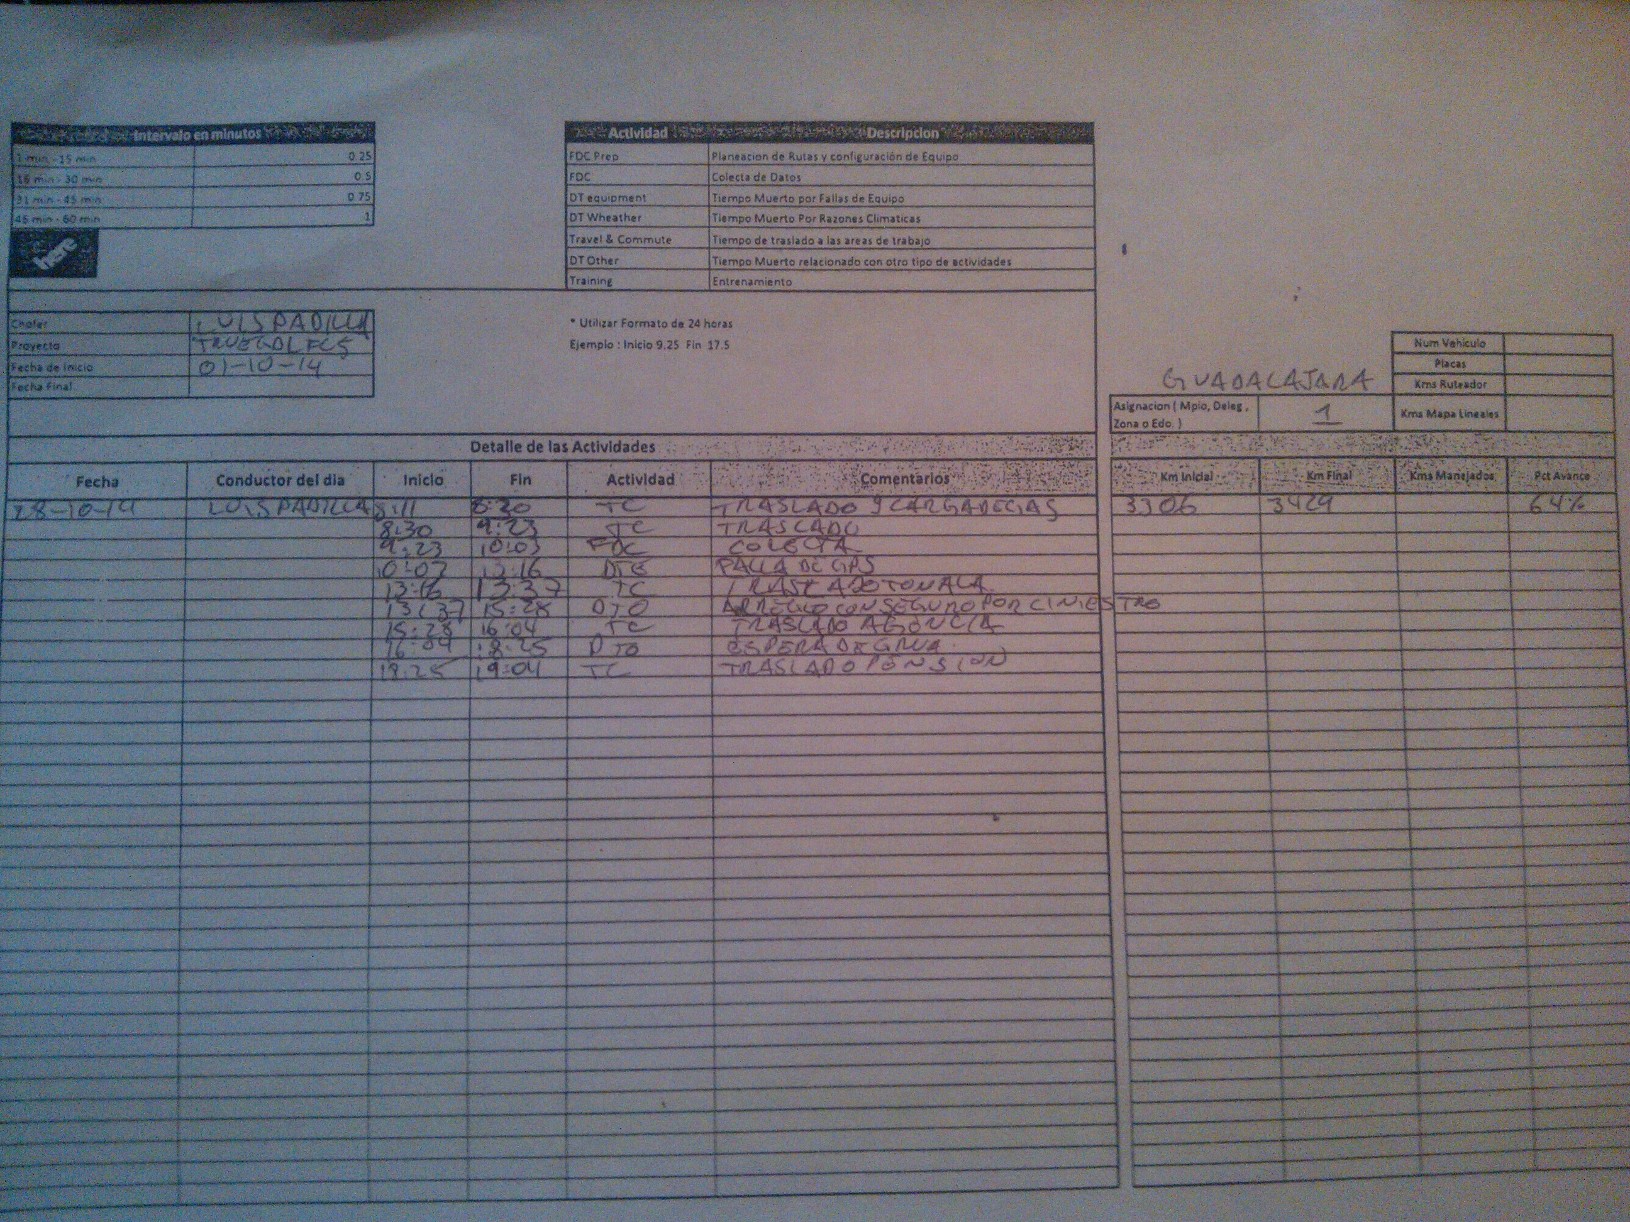 Intervalo en minutos
1 min - 15 min 0.25
16 min - 30 min 0.5
31 min - 45 min 0.75
45 min - 60 min 1
here
Actividad Descripcion
FDC Prep Planeacion de Rutas y configuración de Equipo
FDC Colecta de Datos
DT equipment Tiempo Muerto por Fallas de Equipo
DT Wheather Tiempo Muerto Por Razones Climaticas
Travel & Commute Tiempo de traslado a las areas de trabajo
DT Other Tiempo Muerto relacionado con otro tipo de actividades
Training Entrenamiento
Chofer LUIS PADILLA
Proyecto
Fecha de Inicio 01-10-14
Fecha Final
* Utilizar Formato de 24 horas
Ejemplo : Inicio 9.25 Fin 17.5
Num Vehiculo
Placas
Kms Ruteador
Kms Mapa Lineales
GUADALAJARA
Asignacion ( Mpio, Deleg , Zona o Edo. ) 1
Detalle de las Actividades
Fecha Conductor del dia Inicio Fin Actividad Comentarios Km Inicial Km Final Kms Manejados Pct Avance
28-10-14 LUIS PADILLA 8:11 TC TRASLADO Y CARGA DE GAS 3306 3429 64%
8:30 9:23 TC TRASLADO
9:23 10:03 FDC COLECTA
DTE FALLA DE GPS
13:16 13:37 TC TRASLADO TONALA
13:37 15:28 DTO ARREGLO CON SEGURO POR CINIESTRO
15:28 16:04 TC TRASLADO AGENCIA
16:04 18:25 DTO ESPERA DE GRUA
18:25 19:04 TC TRASLADO PENSION